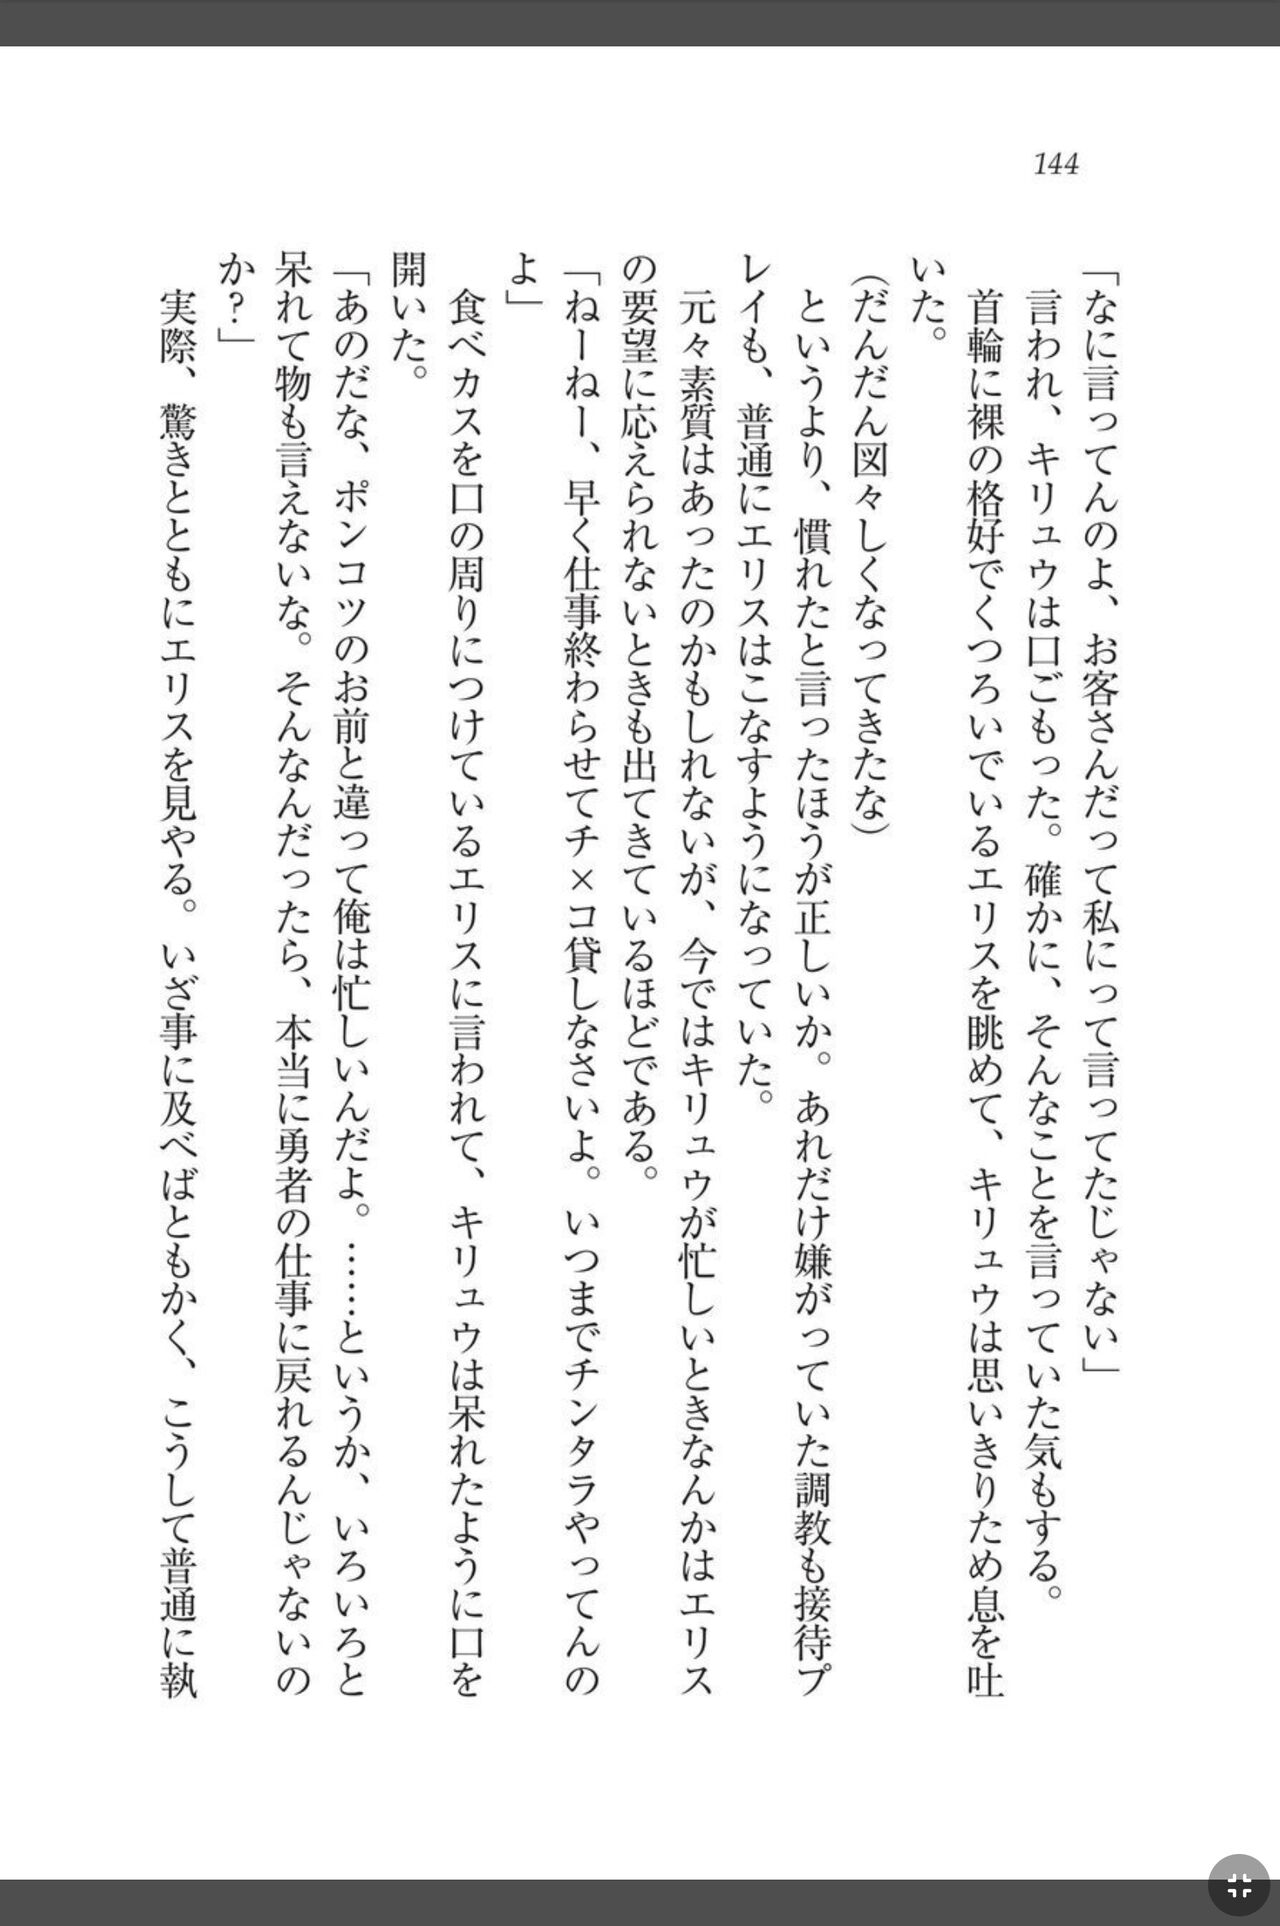 144
「なに言ってんのよ、お客さんだって私にって言ってたじゃない」
言われ、キリュウは口ごもった。確かに、そんなことを言っていた気もする。
首輪に裸の格好でくつろいでいるエリスを眺めて、キリュウは思いきりため息を吐
いた。
（だんだん図々しくなってきたな）
というより、慣れたと言ったほうが正しいか。あれだけ嫌がっていた調教も接待プ
レイも、普通にエリスはこなすようになっていた。
元々素質はあったのかもしれないが、今ではキリュウが忙しいときなんかはエリス
の要望に応えられないときも出てきているほどである。
「ねーねー、早く仕事終わらせてチ×コ貸しなさいよ。いつまでチンタラやってんの
よ」
食べカスを口の周りにつけているエリスに言われて、キリュウは呆れたように口を
開いた。
「あのだな、ポンコツのお前と違って俺は忙しいんだよ。……というか、いろいろと
呆れて物も言えないな。そんなんだったら、本当に勇者の仕事に戻れるんじゃないの
か？」
実際、驚きとともにエリスを見やる。いざ事に及べばともかく、こうして普通に執